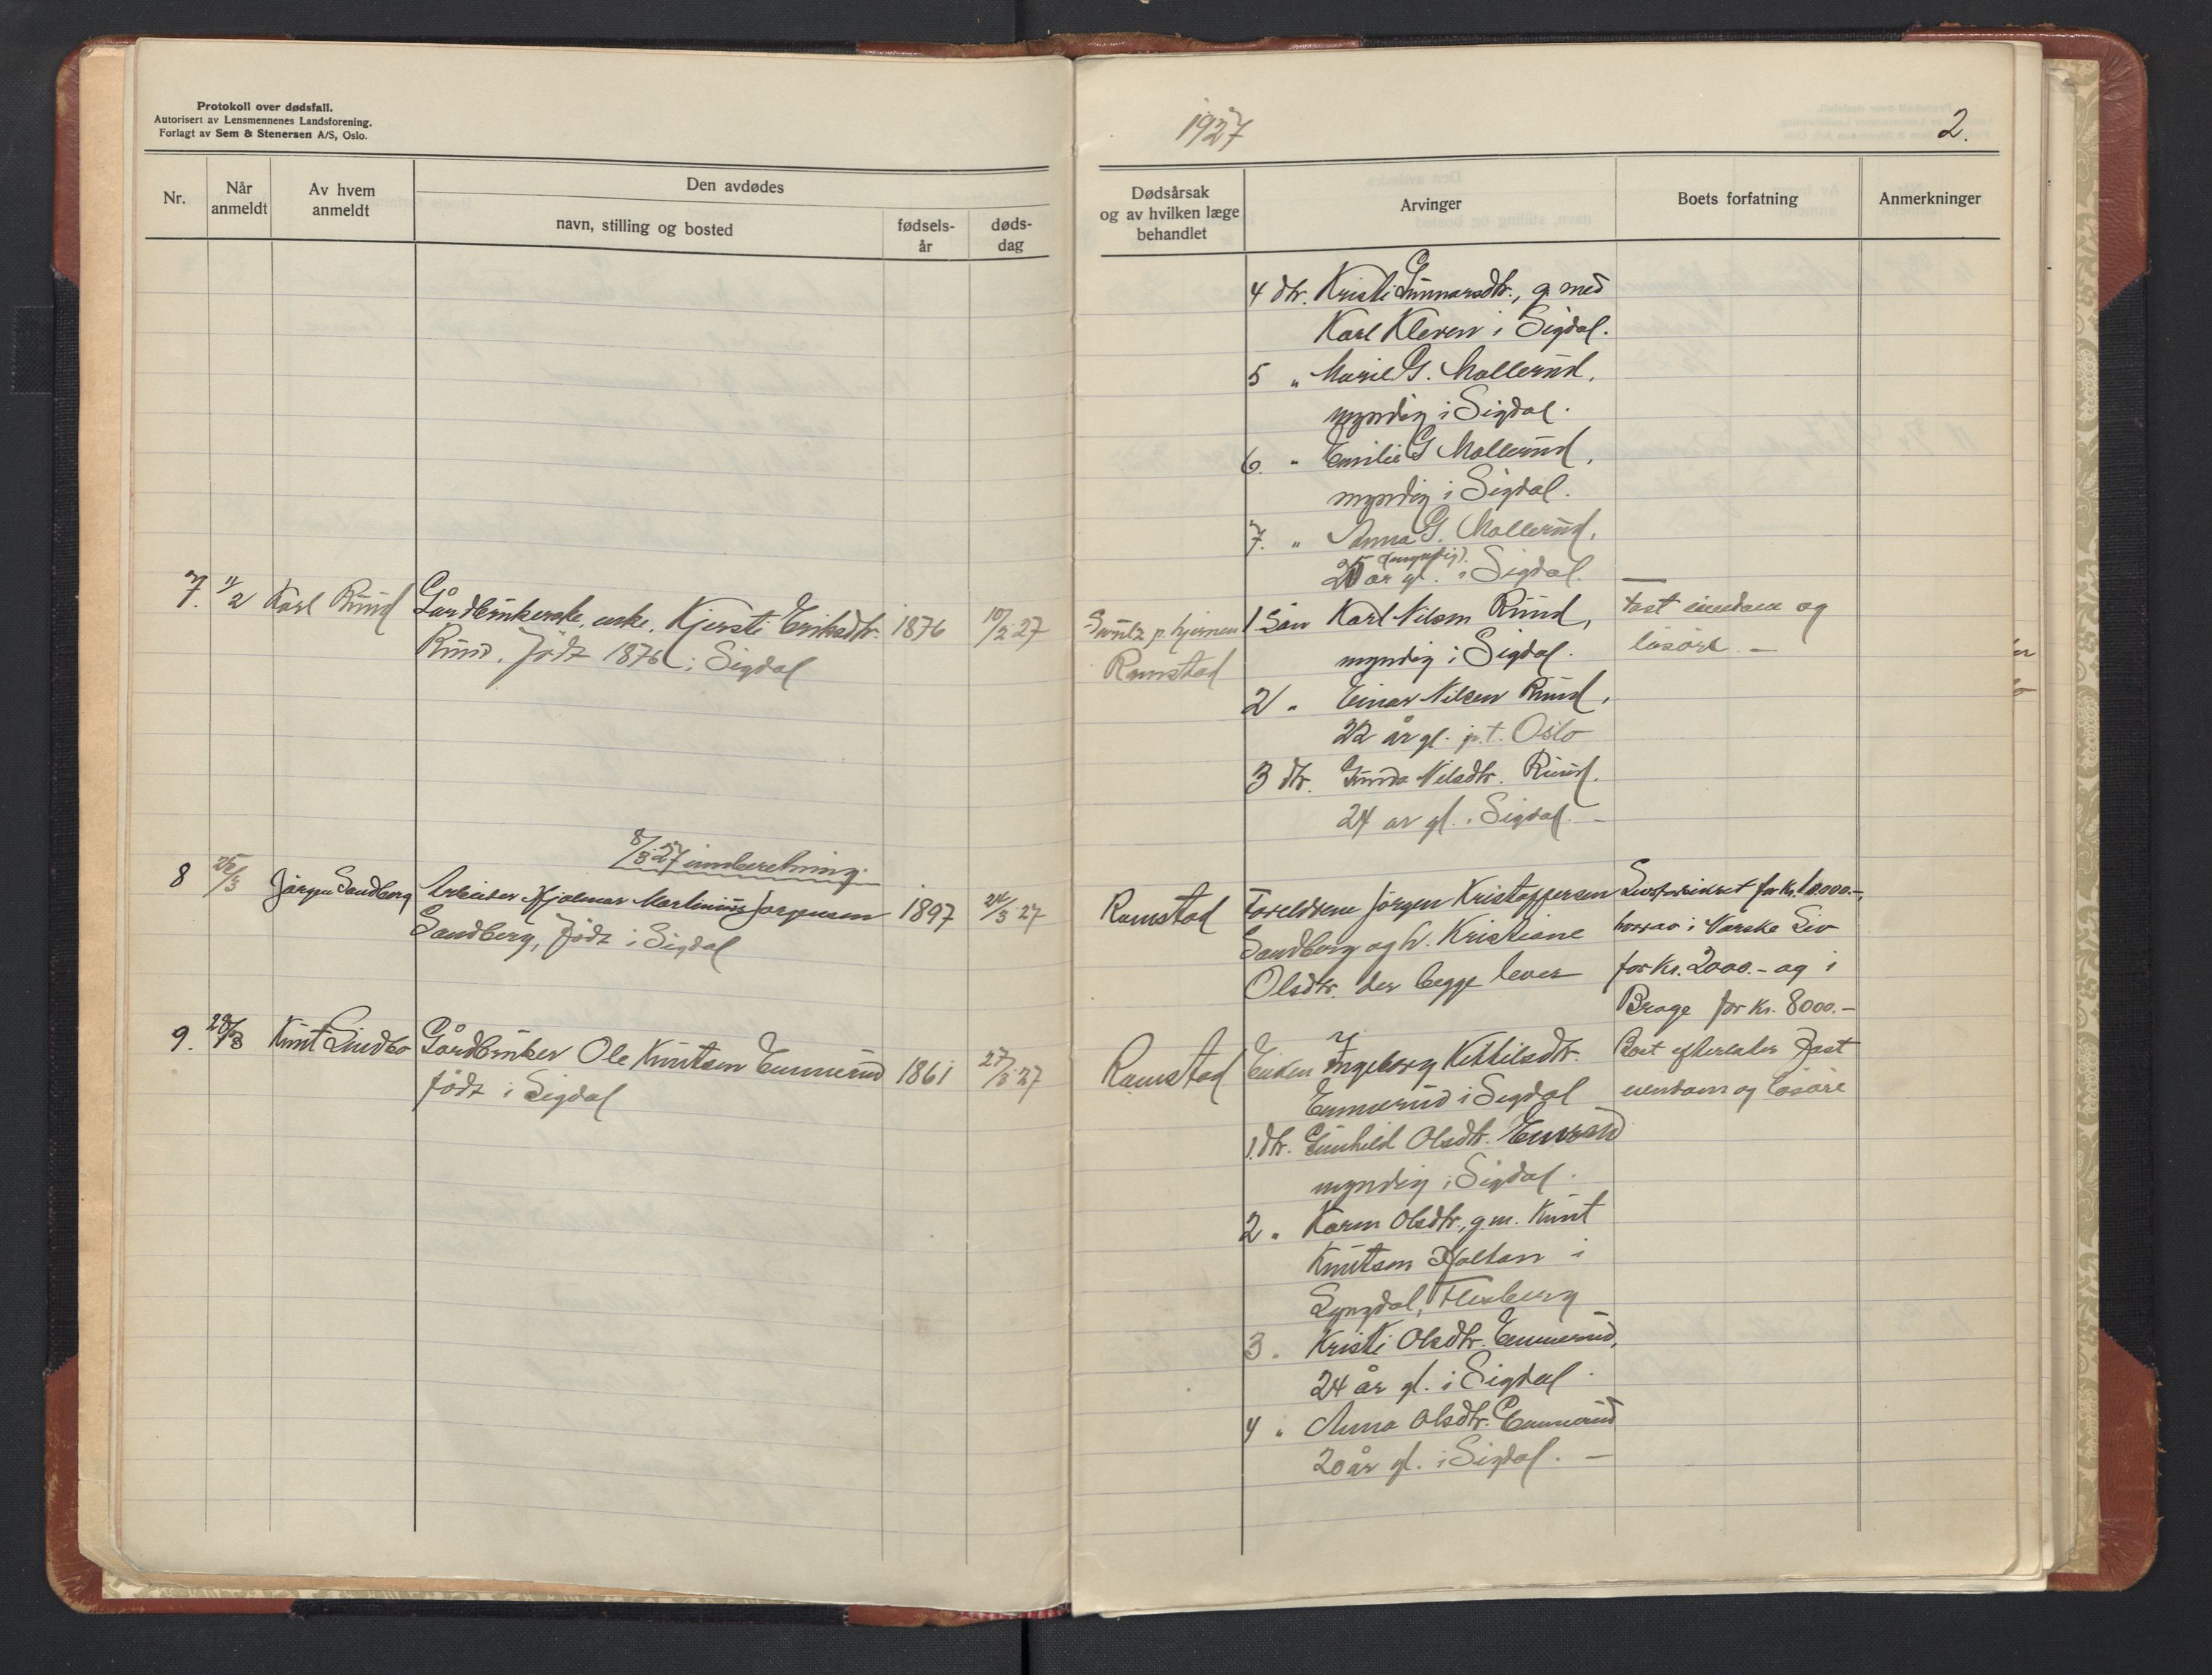 Protokoll over dødsfall.
Autorisert av Lensmennenes Landsforening.
Forlagt av Sem & Stenersen A/S, Oslo.
Nr.
Når anmeldt
Av hvem anmeldt
Den avdødes
navn, stilling og bosted
fødsels-år
døds-dag
7. 11/2 Karl Ruud Gårdbrukerske, enke, Kjersti Eriksdtr. 1876 10/2 27
Ruud. Født 1876 i Sigdal
8/3 27 innberetning.
8 25/3 Jörgen Sandberg Arbeider Hjalmar Martinius Jørgensen 1897 24/3 27
Sandberg, Født i Sigdal
9. 28/3 Knut Lindbo Gårdbruker Ole Knutsen Emmerud 1861 27/3 27
født i Sigdal
1927
2.
Dødsårsak
og av hvilken læge
behandlet
Arvinger
Boets forfatning
Anmerkninger
4 dtr. Kristi Gunnarsdtr., g. med
Karl Kleven i Sigdal.
5 " Marie G. Mollerud,
myndig i Sigdal.
6. " Emilie G Mollerud,
myndig i Sigdal.
7. " Anna G. Mollerud,
(myndig).
25 år gl. i Sigdal.
Svulz p. hjernen 1 Sön Karl Nilsen Ruud, Fast eiendom og
Ramstad myndig i Sigdal. lösöre. —
2 " Einar Nilsen Ruud,
22 år gl. p.t. Oslo
3 dtr. Gunda Nilsdtr. Ruud.
24 år gl. i Sigdal. —
Ramstad Foreldrene Jörgen Kristoffersen Livsforsikret for Kr. 10.000.-,
Sandberg og h. Kristiane hvorav i Norske Liv
Olsdtr. der begge lever for Kr. 2000.- og i
Brage for Kr. 8000.-
Ramstad Enken Ingeborg Kittilsdtr. Boet efterlater Fast
Emmerud i Sigdal eiendom og lösöre
1. dtr. Gunhild Olsdtr. Emmerud
myndig i Sigdal.
2 " Karen Olsdtr., g.m. Knut
Knutsen Holtan i
Lyngdal, Flesberg
3 " Kristi Olsdtr. Emmerud,
24 år gl. i Sigdal.
4 " Anna Olsdtr. Emmerud
20 år gl. i Sigdal. —